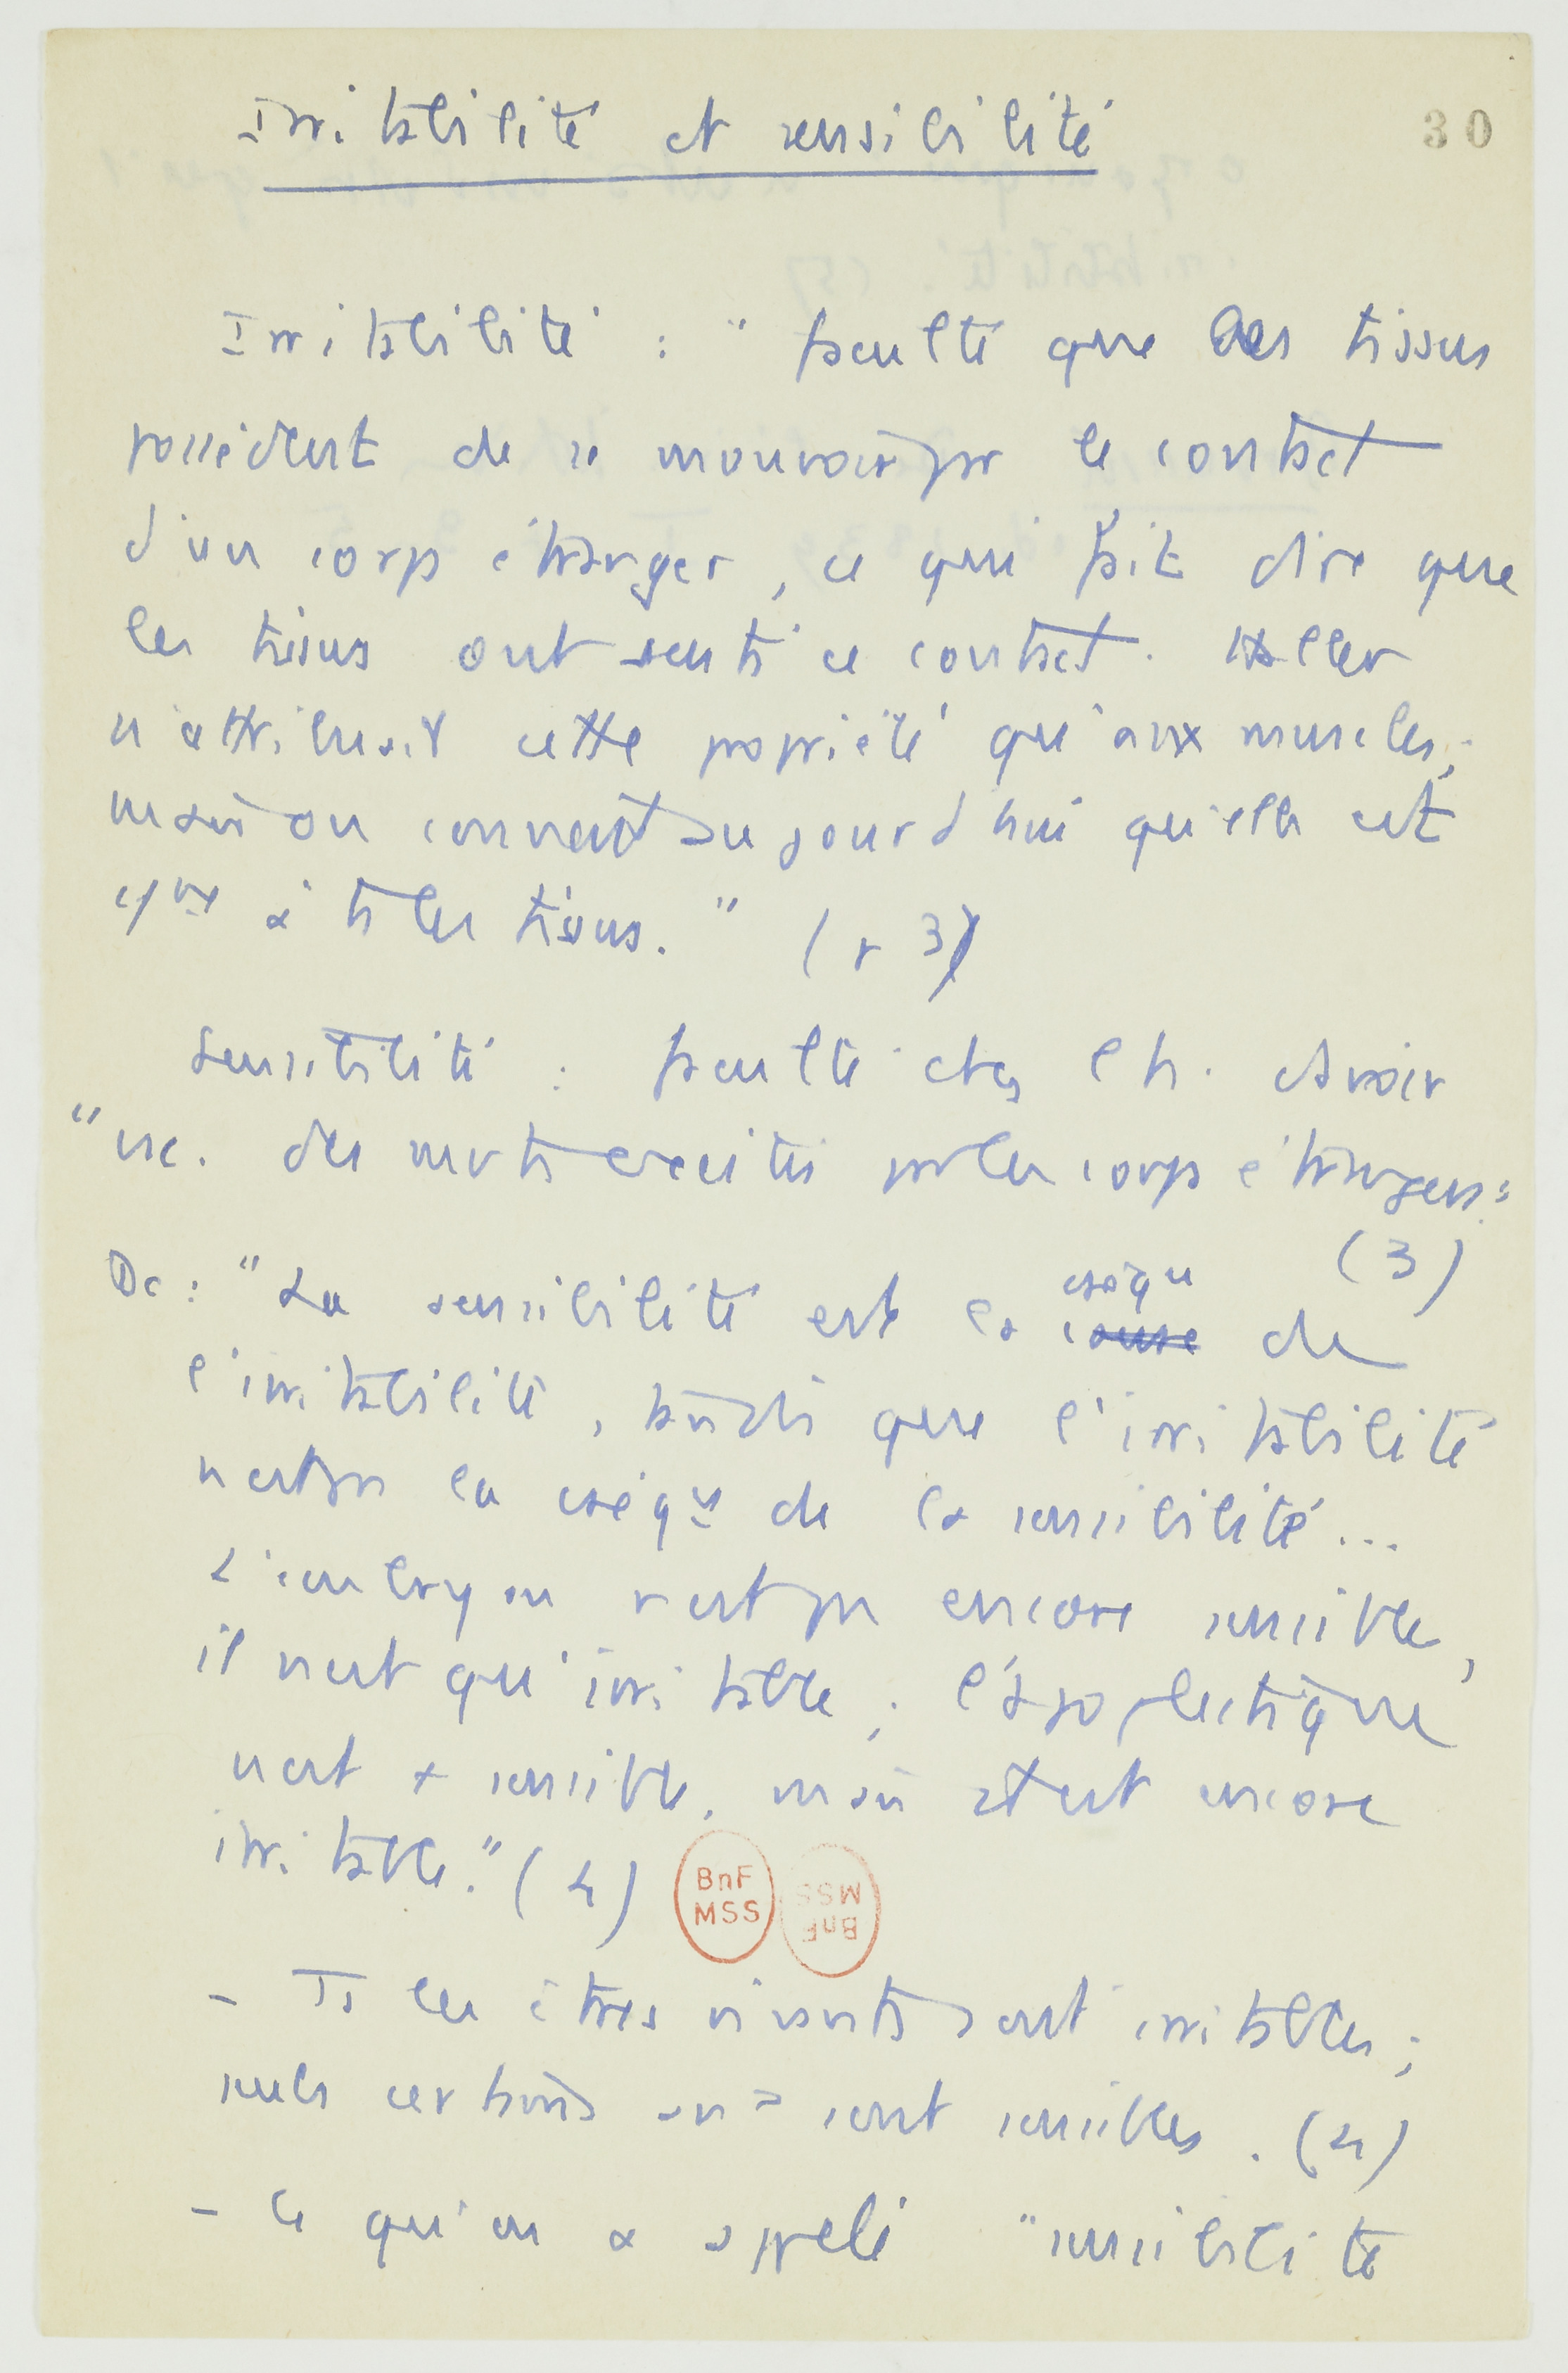 30
Irritabilité et sensibilité
Irritabilité : " faculté que les tissus
possèdent de se mouvoir par le contact
d'un corps étranger, ce qui fait dire que
les tissus ont senti ce contact. Haller
n'attribuait cette propriété qu'aux muscles ;
mais on connaît aujourd'hui qu'elle est
cne à ts les tissus. " (p 3)
Sensibilité : faculté chez l'h. d'avoir
"csc. des mvts excités par les corps étrangers"
(3)
Dc : "La sensibilité est la cause
cséqu
de
l'irritabilité, tandis que l'irritabilité
n'est pas la cséqu de la sensibilité...
L'embryon n'est pas encore sensible,
il n'est qu'irritable ; l'apoplectique
n'est + sensible, mais est encore
irritable." (4)
BnF
MSS
BnF
MSS
- Ts les êtres vivants sont irritables ;
seuls certains anx sont sensibles. (4)
- Ce qu'on a appelé "sensibilité